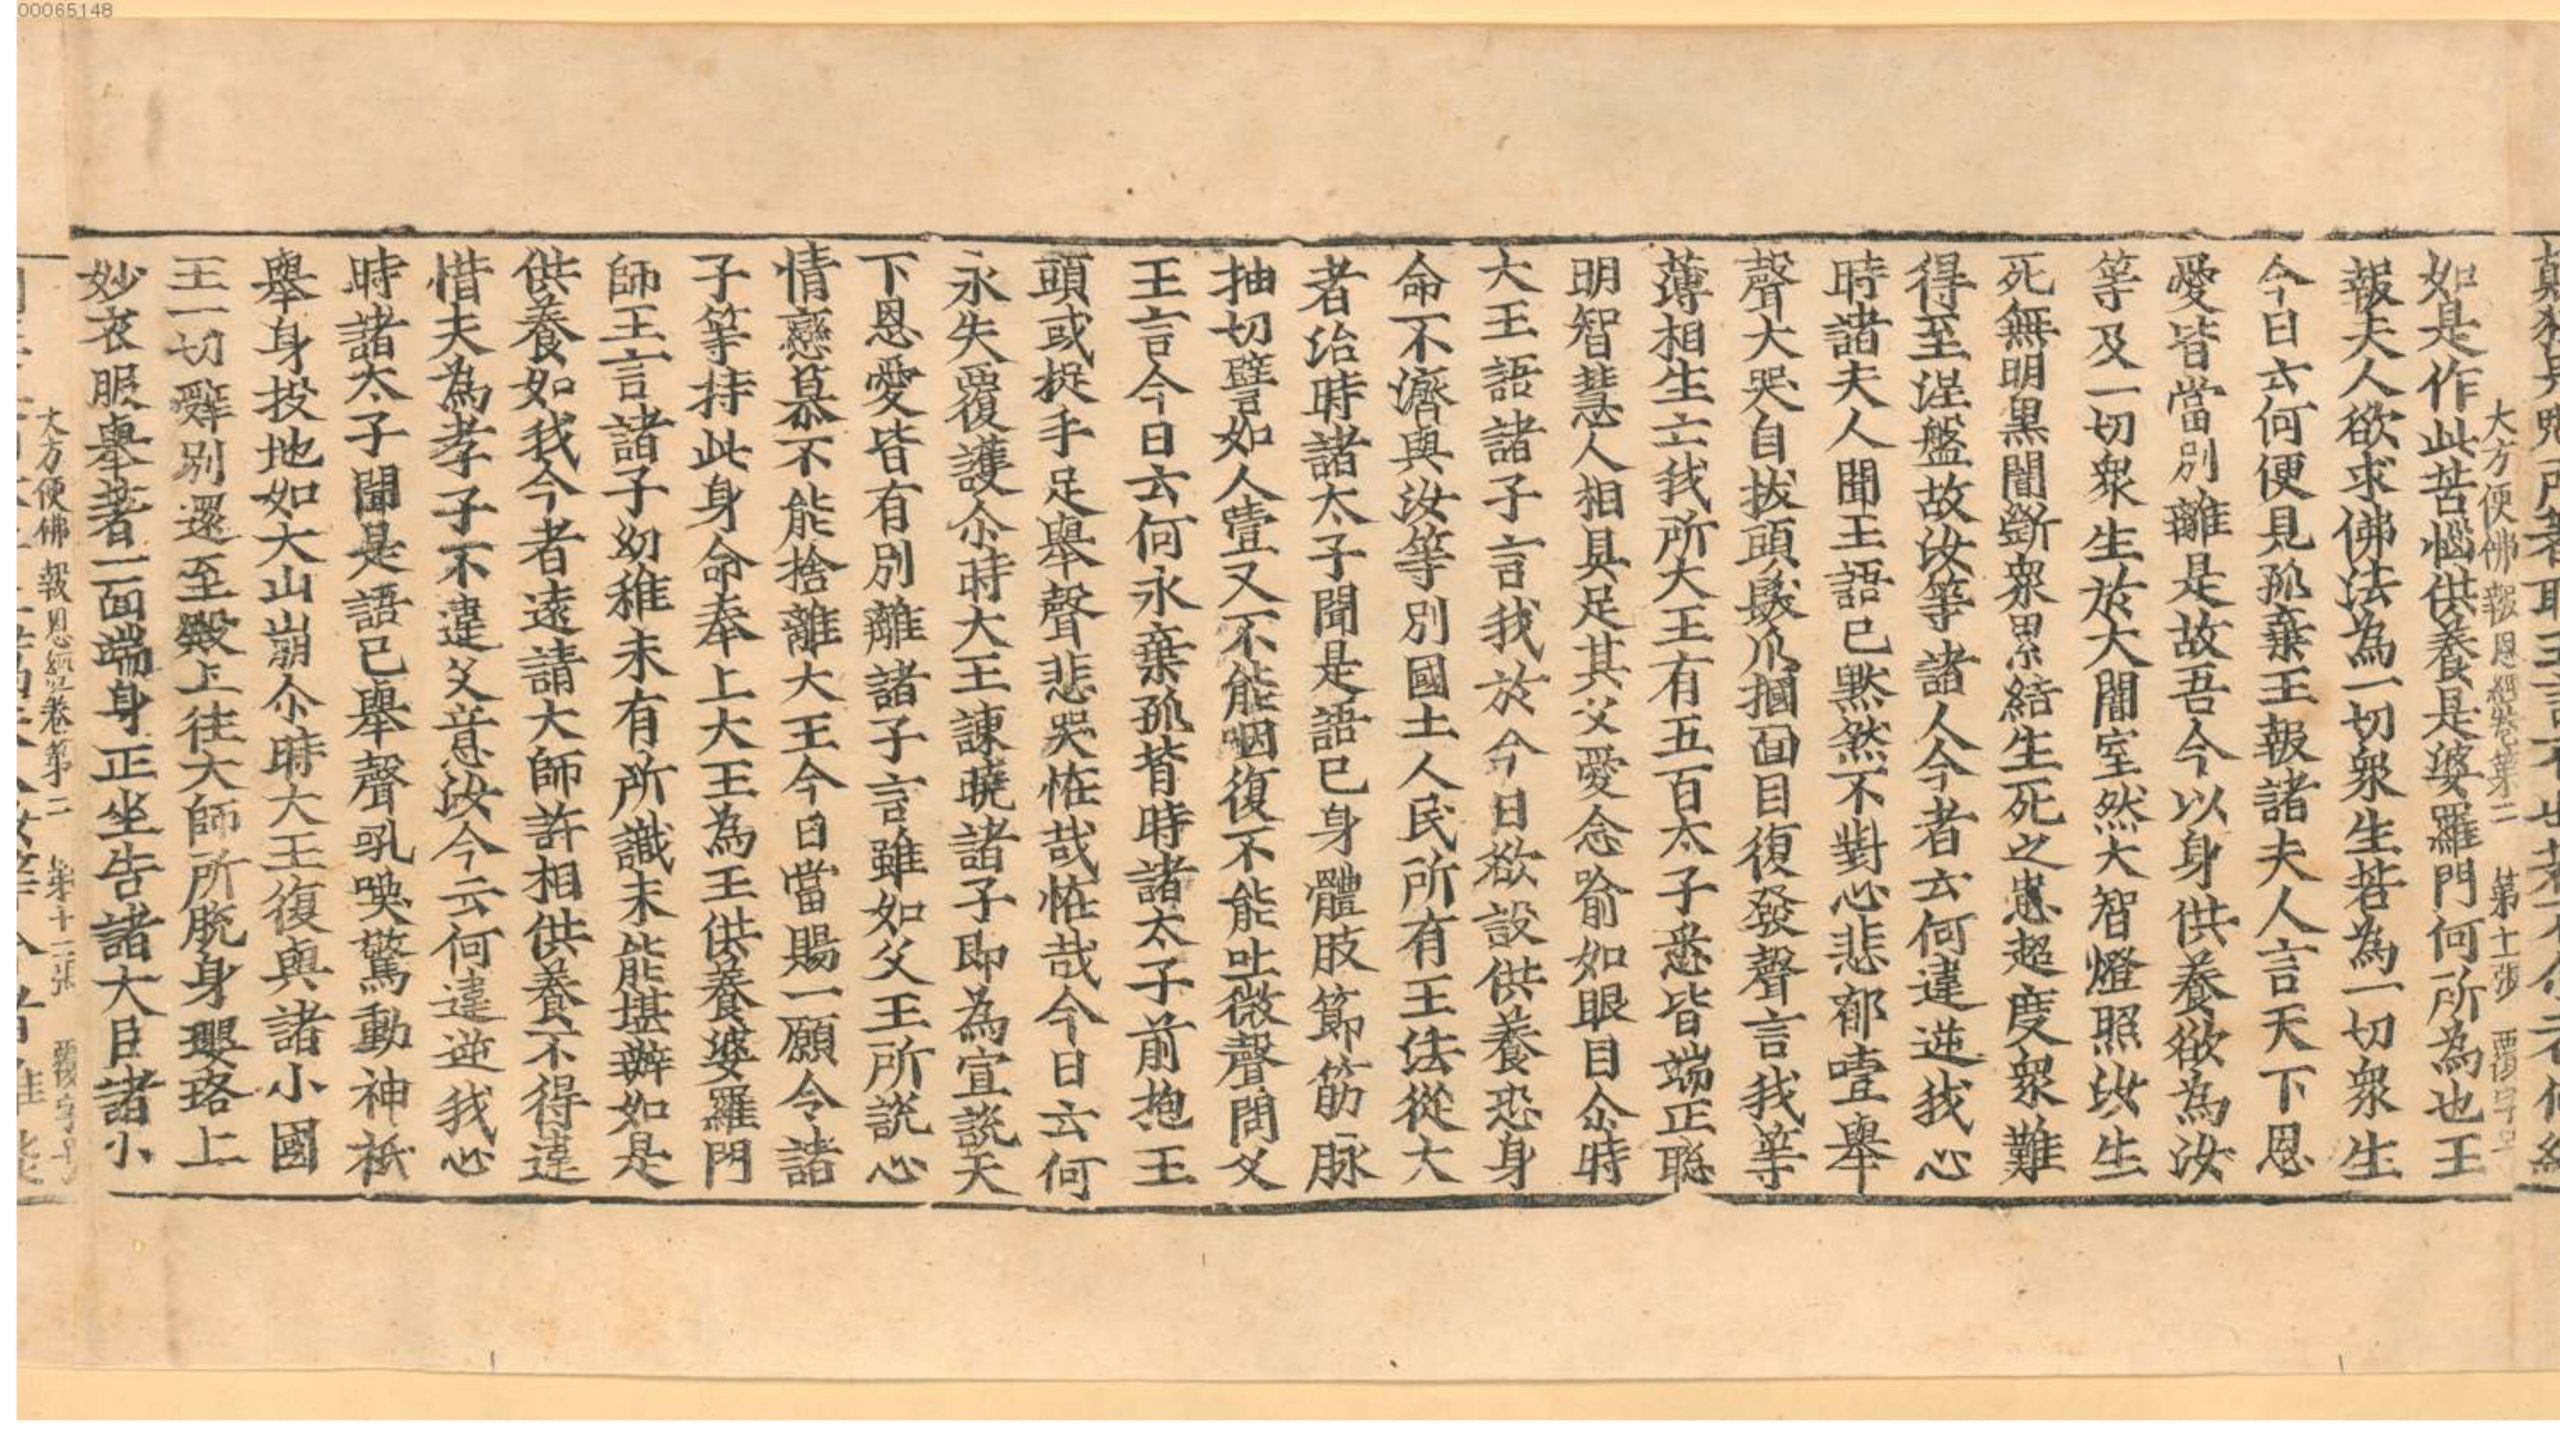 00065148
大方便佛報恩經卷第二 第十一張 覆字号
如是作此苦惱供養是婆羅門何所為也王
報夫人欲求佛法為一切衆生若為一切衆生
今日云何便見孤棄王報諸夫人言天下恩
愛皆當別離是故吾今以身供養欲為汝
等及一切衆生於大闇室然大智燈照汝生
死無明黒闇斷衆累結生死之患超度衆難
得至涅盤故汝等諸人今者云何違逆我心
時諸夫人聞王語已黙然不對心悲鄣噎舉
聲大哭自拔頭髮爪摑面目復發聲言我等
薄相生亡我所大王有五百太子悉皆端正聡
明智慧人相具足其父愛念喻如眼目尒時
大王語諸子言我於今日欲設供養恐身
命不濟與汝等別國土人民所有王法從大
者治時諸太子聞是語已身體肢節筋脉
抽切譬如人噎又不能咽復不能吐微聲問父
王言今日云何永棄孤背時諸太子前抱王
頭或捉手足舉聲悲哭恠哉恠哉今日云何
永失覆護尒時大王諫曉諸子即為宣說天
下恩愛皆有別離諸子言雖如父王所說心
情戀慕不能捨離大王今日當賜一願令諸
子等持此身命奉上大王為王供養婆羅門
師王言諸子幼稚未有所識未能堪辦如是
供養如我今者遠請大師許相供養不得違
惜夫為孝子不違父意汝今云何違逆我心
時諸太子聞是語已舉聲吼嘆驚動神祇
舉身投地如大山崩尒時大王復與諸小國
王一切辭別還至殿上往大師所脫身瓔珞上
妙衣服舉著一面端身正坐告諸大臣諸小
大方便佛報恩經卷第二 第十二張 覆字号